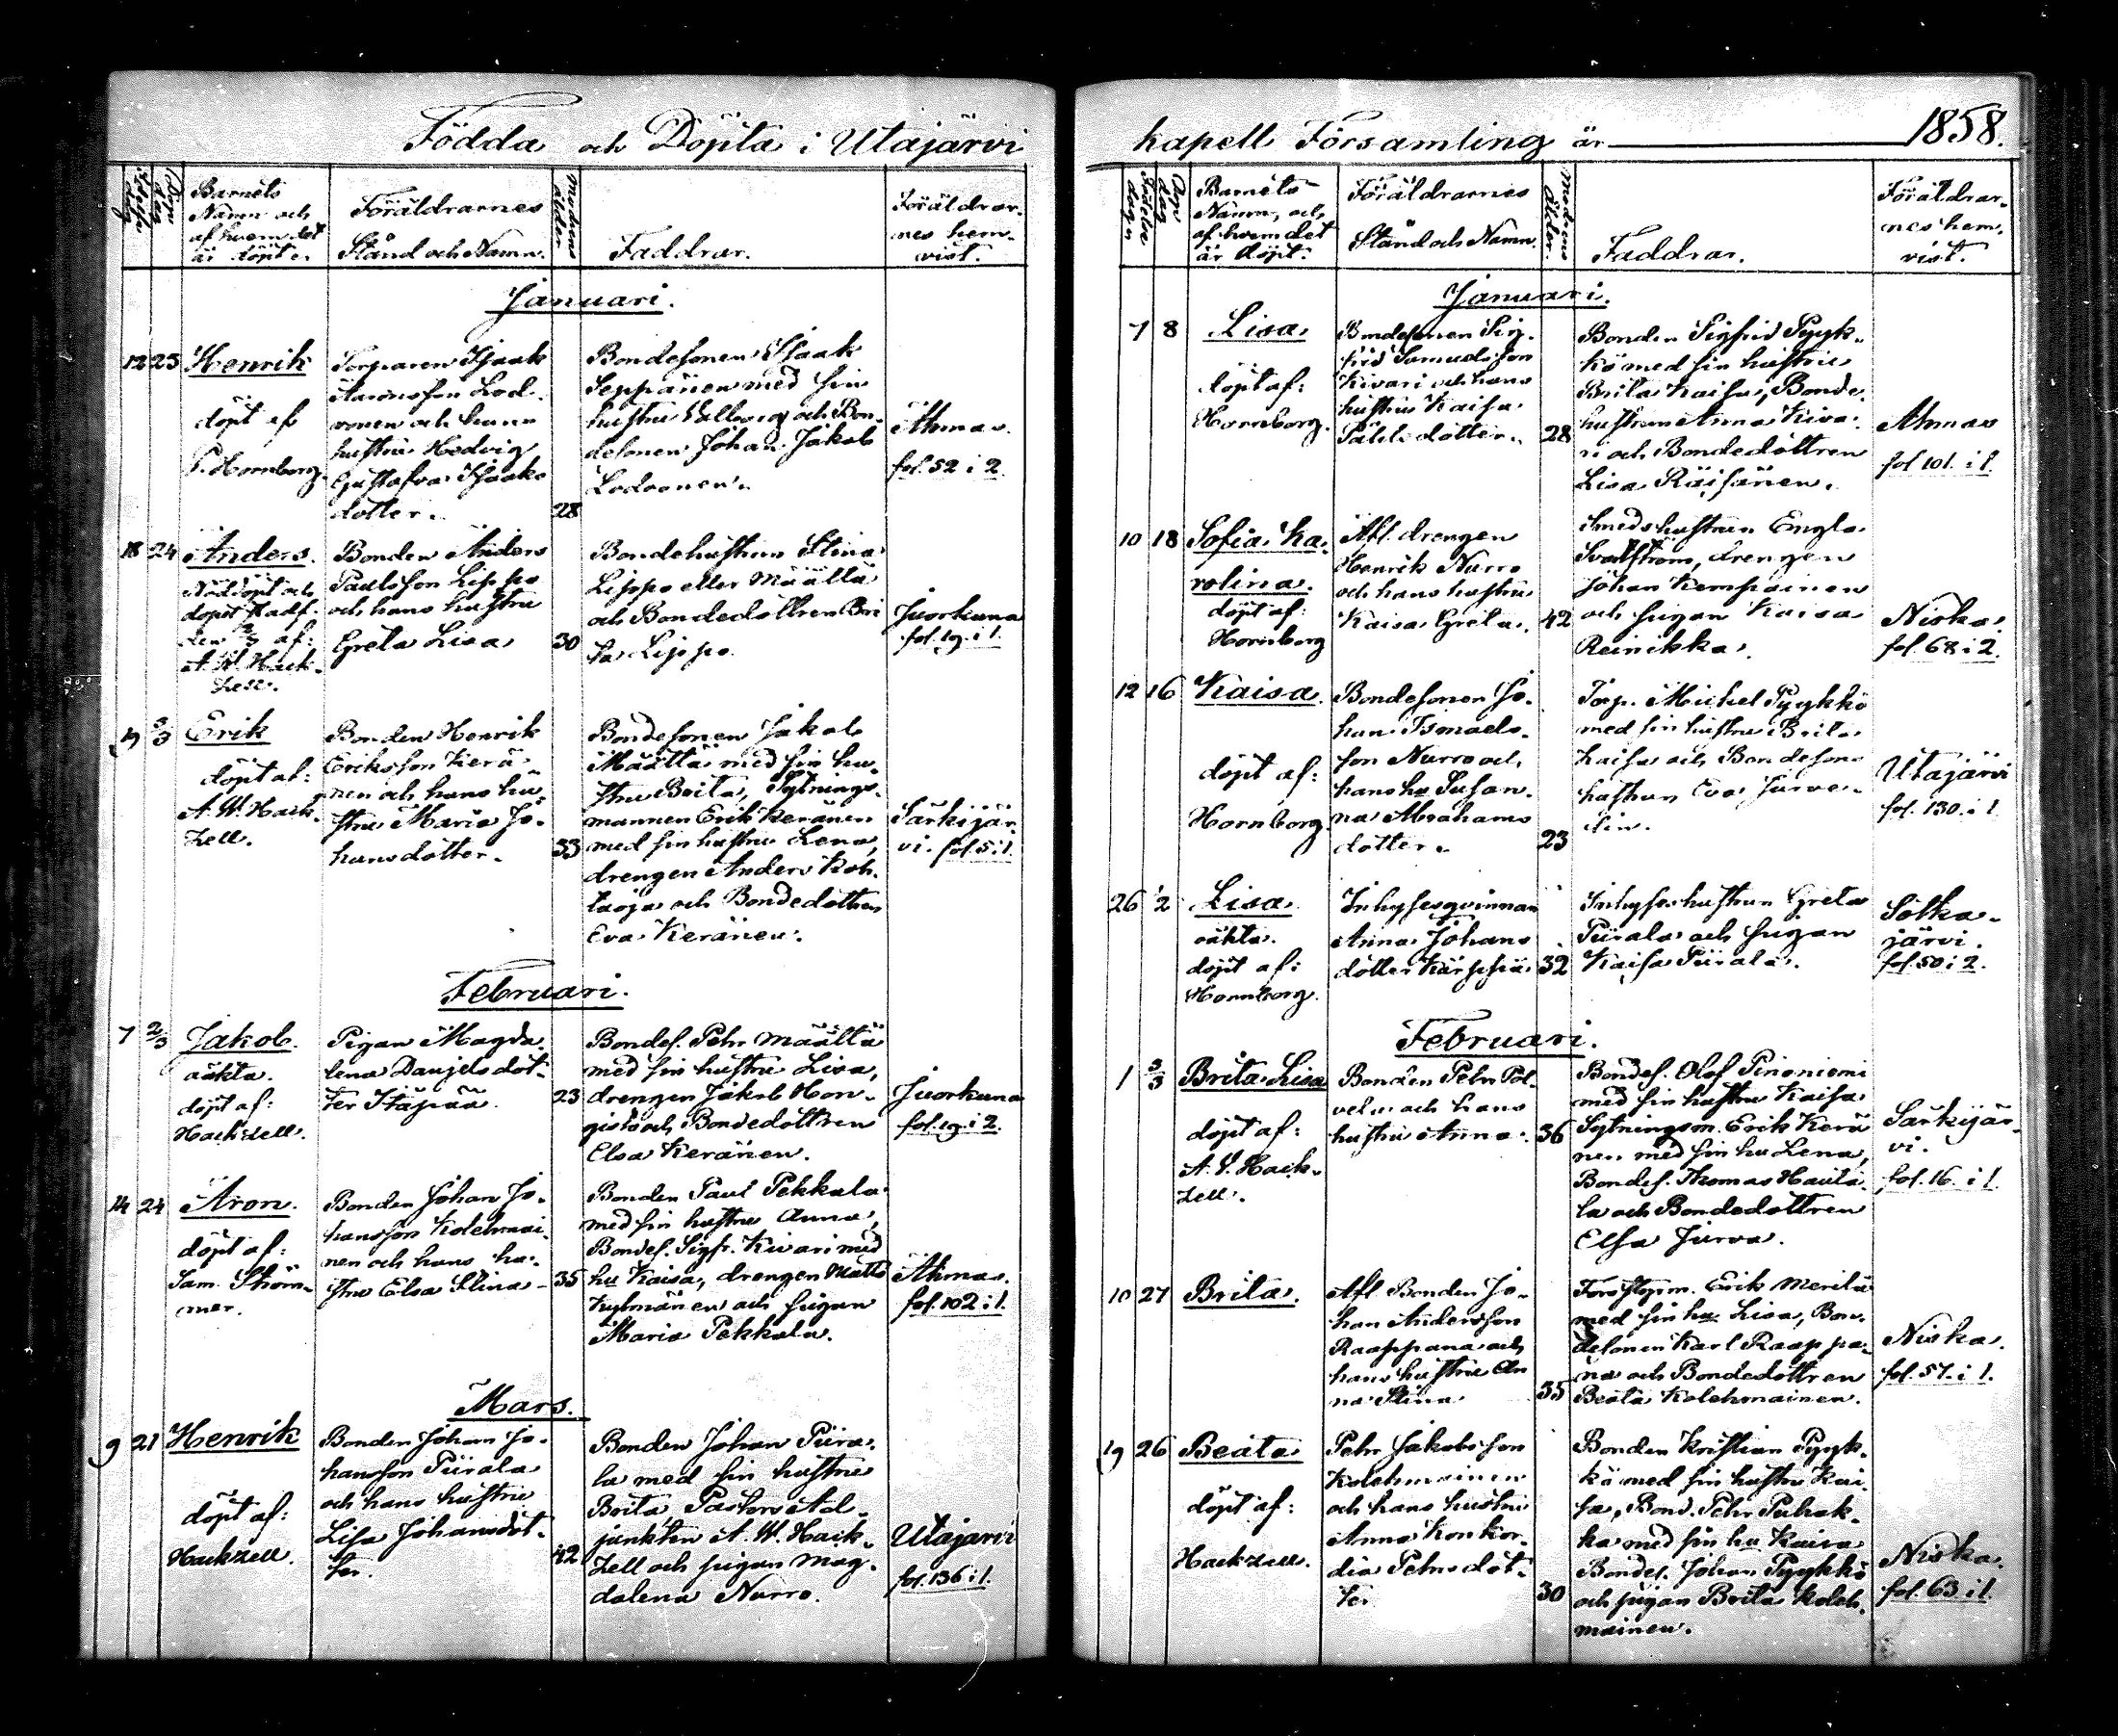 Födda och Döpta i Utajärvi
Födelse dag
Dop dag
Barnets
Namn och
af hvem det
är döpt.
Föräldrarnes
Stånd och Namn.
Modrens ålder
Faddrar.
Föräldrar-
nes hem-
vist.
Januari.
12 23 Henrik
döpt af
P. Hornborg.
Torparen Isaak
Aaronsson Lod-
vonen och hans
hustru Hedvig
Gustafva Isaaks
dotter.
28
Bondesonen Isaak
Seppänen med sin
hustru Vallborg och Bon-
desonen Johan Jakob
Lodvonen.
Ahmas.
fol. 52 i 2.
18 24 Anders.
Nöddöpt och
döpet stadf.
den af:
A. W. Hack-
zell.
Bonden Anders
Paulsson Lippo
och hans hustru
Greta Lisa
30
Bondehustrun Stina
Lippo eller Määttä
och Bondedottren Bri
ta Lippo.
Juorkuna
fol. 19. i 1.
19 3/3 Erik
döpt af:
A. W. Hack-
zell.
Bonden Henrik
Eriksson Kerä-
nen och hans hu-
stru Maria Jo-
hansdotter.
33
Bondesonen Jakob
Määttä med sin hu-
stru Brita, Sytnings-
mannen Erik Keränen
med sin hustru Lena,
drengen Anders Koh-
taoja och Bondedottren
Eva Keränen.
Särkijär-
vi. fol. 5 i 1.
Februari.
7 2/3 Jakob.
oäkta.
döpt af:
Hackzell.
Pigan Magda-
lena Danjelsdot-
ter Itäpää.
23
Bondes. Pehr Määttä
med sin hustru Lisa,
drengen Jakob Hon-
gisto och Bondedottren
Elsa Keränen.
Juorkuna
fol. 19. i 2.
14 24 Aron.
döpt af:
Sam. Thörn-
mer.
Bonden Johan Jo-
hansson Kolehmai-
nen och hans hu-
stru Elsa Stina
35
Bonden Paul Pekkala
med sin hustru Anna,
Bondes. Sigfr. Kivari med
hu Kaisa, drengen Matts
Kylmänen och pigan
Maria Pekkala.
Ahmas.
fol. 102 i 1.
Mars.
9 21 Henrik
döpt af:
Hackzell.
Bonden Johan Jo-
hansson Piirala
och hans hustru
Lisa Johansdot-
ter.
42
Bonden Johan Piira-
la med sin hustru
Brita Pastors Ad-
junkten A. W. Hack-
zell och pigan Mag-
dalena Nurro.
Utajärvi
fol. 136 i 1.
kapell Församling år 1858.
Födelse dag
Dop dag
Barnets
Namn, och
af hvem det
är döpt.
Föräldrarnes
Stånd och Namn.
Modrens ålder.
Faddrar.
Föräldrar-
nes hem-
vist.
Januari.
7 8 Lisa
döpt af:
Hornborg.
Bondesonen Sig-
frid Samuelsson
Kivari och hans
hustru Kaisa
dotter.
28
Bonden Sigfrid Pyyk-
kö med sin hustru
Brita Kaisa, Bonde-
hustrun Anna Kiva-
ri och Bondedottren
Lisa Räisänen.
Ahmas
fol 101. i 1.
10 18 Sofia Ka-
rolina.
döpt af:
Hornborg
Afl. drengen
Henrik Nurro
och hans hustru
Kaisa Greta.
42
Smedshustrun Engla
drengen
Johan Kemppainen
och pigan Kaisa
Reinikka.
Niska.
fol. 68 i 2.
12 16 Kaisa
döpt af:
Hornborg.
Bondesonen Jo-
han Ismaels-
son Nurro och
hans hu Susan-
na Abrahams
dotter.
23
Torp. Mickel Pyykkö
med sin hustru Brita
Kaisa och Bondesons
hustrun Eva Jurve-
lin.
Utajärvi
fol. 130. i 1
26 1/2 Lisa
oäkta.
döpt af:
Hornborg.
Inhysesqvinnan
Anna Johans
dotter Kärppä
32
Inhyseshustrun Greta
Piirala och pigan
Kaisa Piirala.
Sotka-
järvi.
fol. 50 i 2.
Februari.
1 3/3 Brita Lisa
döpt af:
A. W. Hack-
zell.
Bonden Pehr Pol-
vela och hans
hustru Anna.
36
Bondes. Olof Pinoniemi
med sin hustru Kaisa
Sytningsm. Erik Kerä
nen med sin hu Lena,
Bondes. Thomas Hauta-
la och Bondedottren
Elsa Jurva.
Särkijär-
vi.
fol. 16. i 1
10 27 Brita.
Afl. Bonden Jo-
han Andersson
Raappana och
hans hustru An
na Stina
35
Erik Merilä
med sin hu Lisa, Bon-
desonen Karl Raappa-
na och Bondedottren
Beata Kolehmainen.
Niska.
fol. 57. i 1.
19 26 Beata
döpt af:
Hackzell.
Pehr Jakobsson
Kolehmainen
och hans hustru
Anna Konkor-
dia Pehrsdot-
ter
30
Bonden Kristian Pyyk-
kö med sin hustru Kai-
sa, Bond. Pehr Puhak-
ka med sin hu Kaisa
Bondes. Johan Pyykkö
och pigan Brita Koleh-
mainen.
Niska.
fol. 63 i 1.